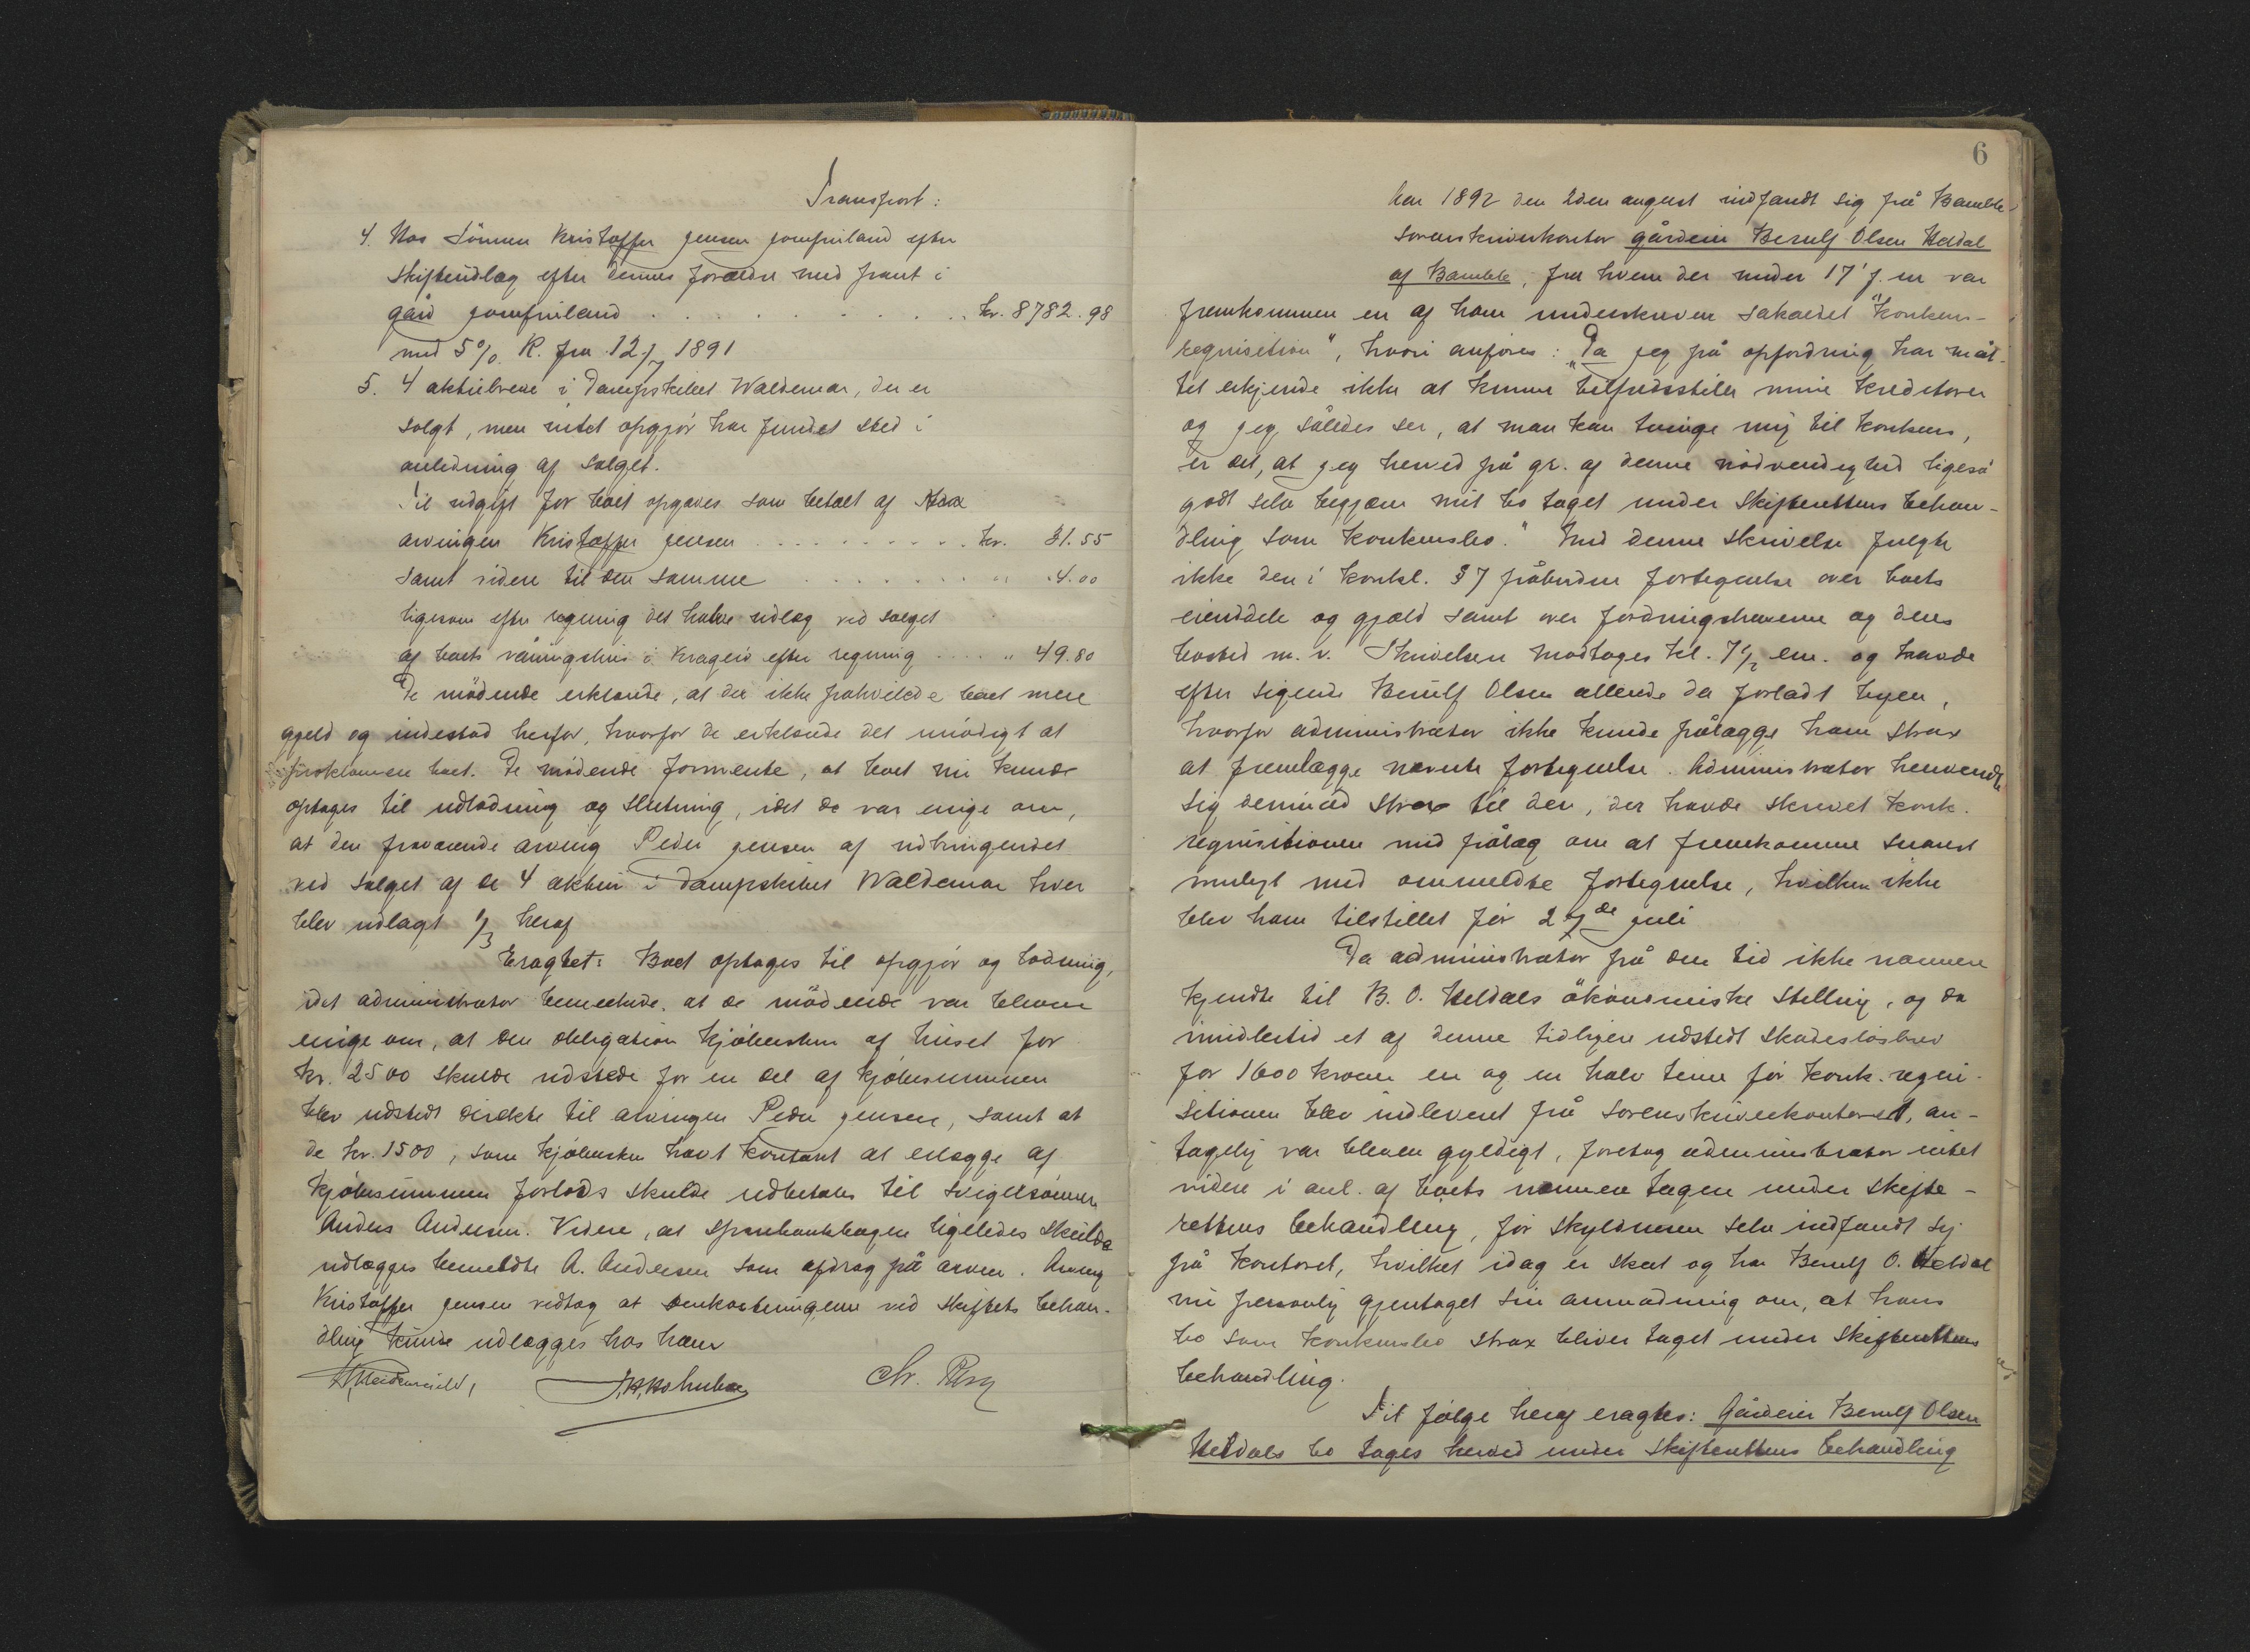 Transport:
4. Hos Sønnen Kristoffer Jensen Jomfruland efter
Skifteudlæg efter dennes forældre med pant i
gård Jomfruland . . . . . . . . . kr. 8782.98
med 5% R. fra 12/7 1891
5. 4 aktiebreve i Dampskibet Waldemar, der er
solgt, men intet opgjør har fundet sted i
anledning af salget.
Til udgift for boet opgaves som betalt af
arvingen Kristoffer Jensen . . . . . . . . . kr. 31.55
samt videre til den samme . . . . . . . " 4.00
ligesom efter regning det halve udlæg ved salget
af boets våningshus i Kragerø efter regning . . . " 49.80
De mødende erklærede, at der ikke påhvilede boet mere
gjeld og indestod herfor, hvorfor de erklærede det unødigt at
proklamere boet. De mødende formente, at boet nu kunde
optages til udlodning og slutning, idet de var enige om,
at den fraværende arving Peder Jensen af udbringendet
ved salget af de 4 aktier i Dampskibet Waldemar hver
blev udlagt 1/3 heraf
Eragtet: Boet optages til opgjør og lodning,
idet administrator bemerkede, at de mødende var bleven
enige om, at den obligation kjøbersken af huset for
kr. 2500 skulde udstede for en del af kjøbesummen
blev udstedt direkte til arvingen Peder Jensen, samt at
de kr. 1500, som kjøbersken havt kontant at erlægge af
kjøbesummen forlods skulde udbetales til svigersønnen
Anders Andersen. Videre, at sparebankbogen ligeledes skulde
udlægges bemeldte A. Andersen som afdrag på arven. Arving
Kristoffer Jensen vedtog at omkostningerne ved skiftets behan-
dling kunde udlægges hos ham
Chr.
6
Aar 1892 den 2den august indfandt sig på Bamble
sorenskriverkontor gårdeier Berulf Olsen Heldal
af Bamble, fra hvem der under 17' f. m var
fremkommen en af ham underskreven såkaldet "konkurs-
requisition", hvori anføres: "Da jeg på opfordring har måt-
tet erkjende ikke at kunne tilfredsstille mine kreditorer
og jeg således ser, at man kan tvinge mig til konkurs,
er det, at jeg herved på gr. af denne nødvendighed ligeså
godt selv begjærer mit bo taget under Skifterettens behan-
dling som konkursbo." Med denne skrivelse fulgte
ikke den i konksl. § 7 påbudne fortegnelse over boets
eiendele og gjæld samt over fordringshaverne og deres
bosted m. v. Skrivelsen modtoges kl. 7 1/2 em. og havde
efter sigende Berulf Olsen allerede da forladt byen,
hvorfor administrator ikke kunde pålægge ham strax
at fremlægge nævnte fortegnelse. Administrator henvendte
sig derimod strax til den, der havde skrevet konk.
requisitionen med pålæg om at fremkomme snarest
muligt med ommeldte fortegnelse, hvilken ikke
blev ham tilstillet før 27de juli
Da administrator på den tid ikke nærmere
kjendte til B. O. Heldals økonomiske stilling, og da
imidlertid et af denne tidligere udstedt skadesløsbrev
for 1600 kroner en og en halv time før konk. requi-
sitionen blev indleveret på sorenskriverkontoret, an-
tagelig var bleven gyldigt, foretog administrator intet
videre i anl. af boets nærmere tagen under skifte-
rettens behandling, før skyldneren selv indfandt sig
på kontoret, hvilket idag er skeet og har Berulf O. Heldal
nu personlig gjentaget sin anmodning om, at hans
bo som konkursbo strax bliver taget under skifterettens
behandling.
Til følge heraf eragtes: Gårdeier Berulf Olsen
Heldals bo tages herved under skifterettens behandling